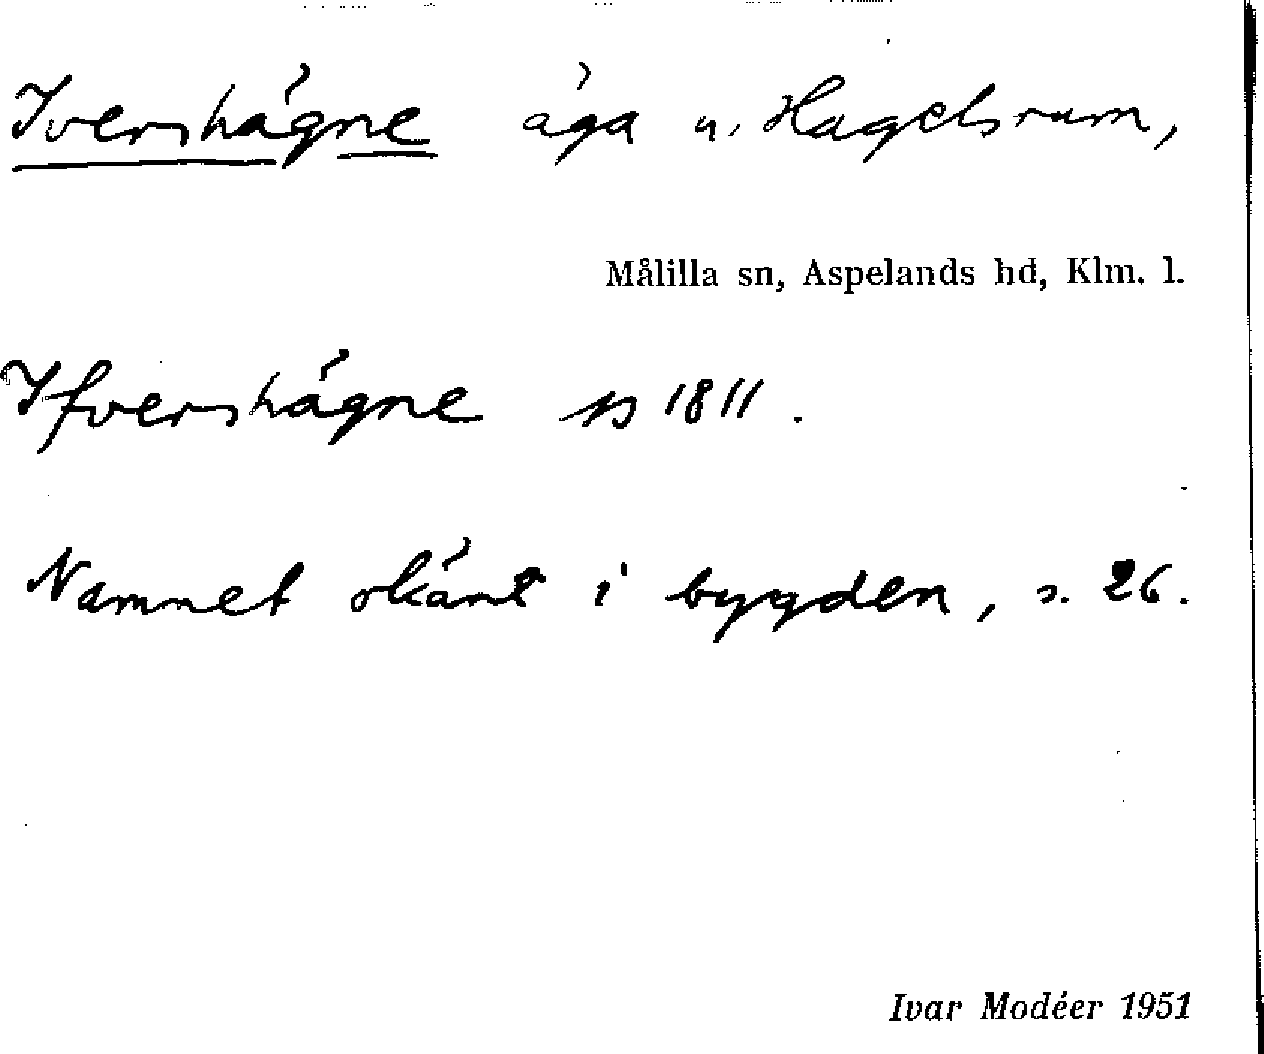 Ivershägne äga u. Hagelsrum,
Målilla sn, Aspelands hd, Klm. l.
Ifvershägne 1811.
Namnet okänt i bygden, s. 26.
Ivar Modéer 1951